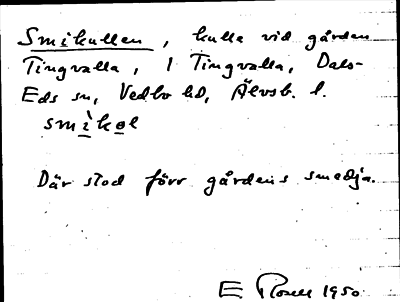 Smikullen, kulla vid gården
Tingvalla, 1 Tingvalla, Dals-
Eds sn, Vedbo hd, Älvsb. l.
smìkəl
Där stod förr gårdens smedja.
E Rosell 1950